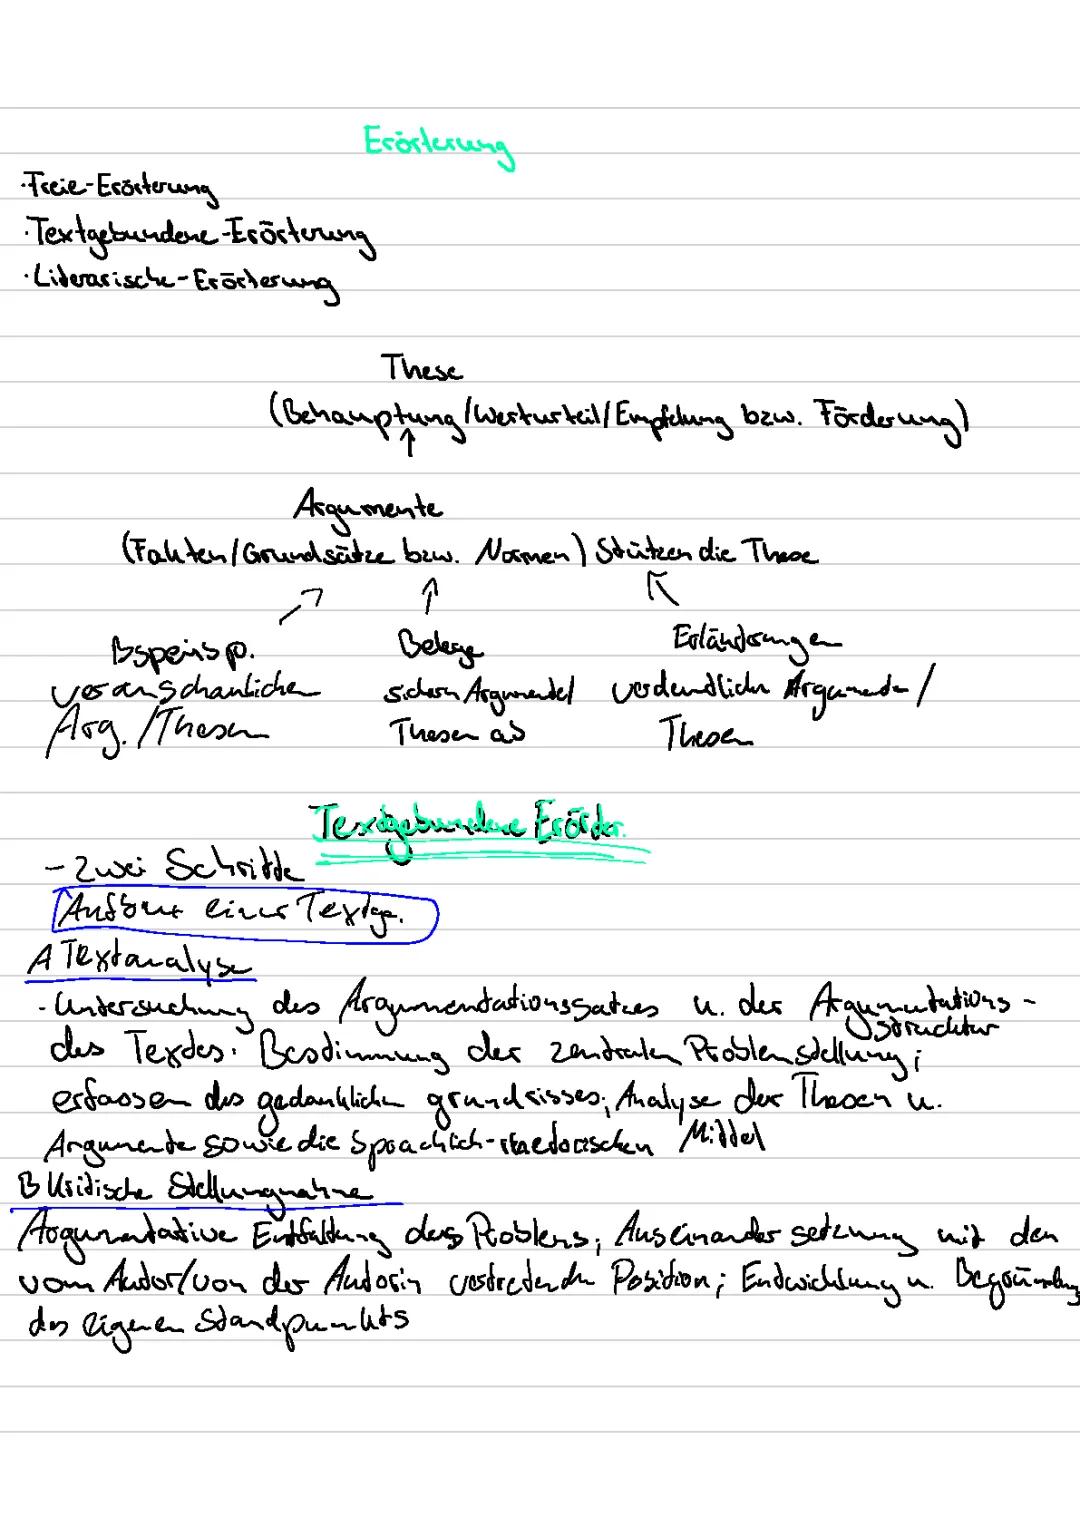 Erörterung
·Freie-Erörterung
·Textgebundene-Erörterung
·Literarische-Erörterung
These
(Behauptung/Werturteil/Empfehlung bzw. Förderung)
↑
Argumente
(Fakten/Grundsätze bzw. Normen) Stützen die These
↗ ↑ ↖
Belege Erläuterungen
veranschaulichen sichern Argumente/ verdeutlichen Argumente/
Arg./Thesen Thesen ab Thesen
Textgebundene Erörter.
- Zwei Schritte
Aufbau einer Textge.
A Textanalyse
- Untersuchung des Argumentationssatzes u. der Argumentations-
struktur
des Textes. Bestimmung der zentralen Problemstellung;
erfassen des gedanklichen grundrisses; Analyse der Thesen u.
Argumente sowie die Sprachlich-rhetorischen Mittel
B Kritische Stellungnahme
Argumentative Entfaltung des Problems; Auseinandersetzung mit den
vom Autor/von der Autorin vertretenden Position; Entwicklung u. Begründung
des eigenen Standpunkts